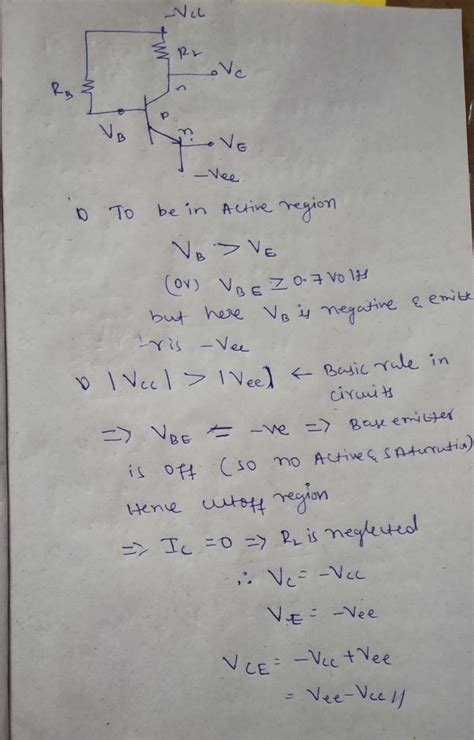 -Vcc
RL
VC
RB
n
P
VB
n
VE
-Vee
1) To be in Active region
VB > VE
(or) VBE ≥ 0.7 Volts
but here VB is negative & emitte
-r is -Vee
1) |Vcc| > |Vee| ← Basic rule in
circuits
=> VBE = -ve => Base emitter
is off (so no Active & SAturation)
Hence cutoff region
=> IC = 0 => RL is neglected
∴ VC = -Vcc
VE = -Vee
VCE = -Vcc + Vee
= Vee - Vcc //